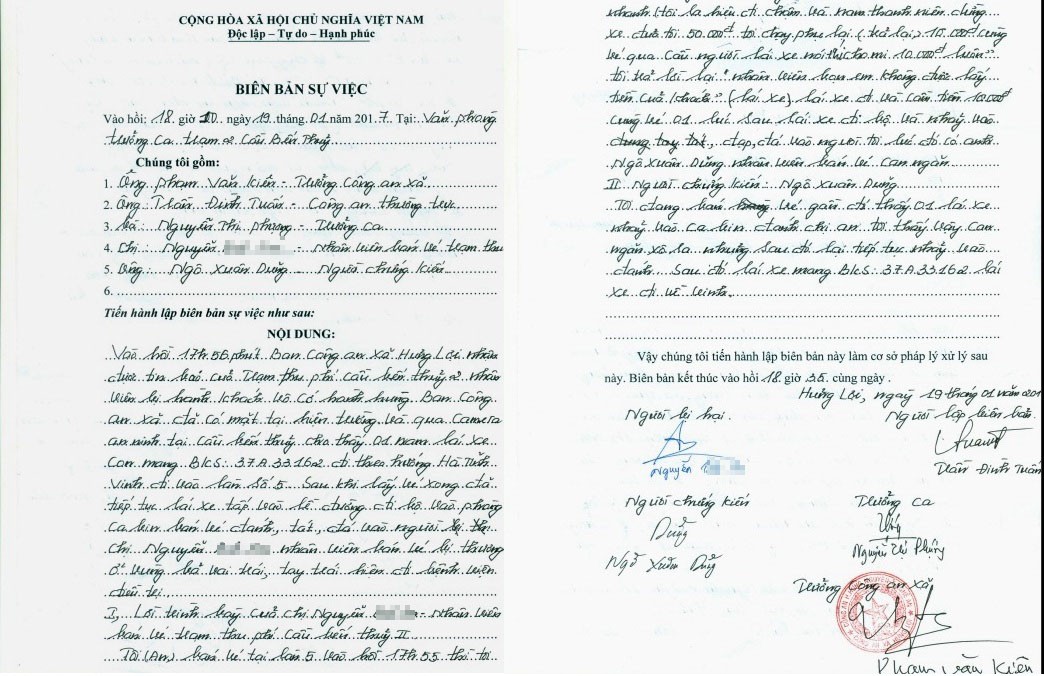 CỘNG HÒA XÃ HỘI CHỦ NGHĨA VIỆT NAM
Độc lập – Tự do – Hạnh phúc
BIÊN BẢN SỰ VIỆC
Vào hồi: 18 giờ 10 ngày 19 tháng 01 năm 2017. Tại: Văn phòng
trưởng Ca trạm 2 Cầu Bến Thuỷ
Chúng tôi gồm:
1. Ông Phạm Văn Kiên - Trưởng Công an xã
2. Ông Trần Đình Tuấn - Công an thường trực
3. Bà: Nguyễn Thị Phượng - Trưởng Ca
4. Chị: Nguyễn - Nhân viên bán vé trạm thu
5. Ông: Ngô Xuân Dũng Người chứng kiến
6.
Tiến hành lập biên bản sự việc như sau:
NỘI DUNG:
Vào hồi 17h 56 phút Ban Công an xã Hưng Lợi nhận
được tin báo của Trạm thu phí cầu bến thuỷ 2 nhân
viên bị hành khách vô cớ hành hung. Ban Công
an xã đã có mặt tại hiện trường và qua Camera
an ninh tại cầu bến thuỷ cho thấy 01 nam lái xe
Con mang BKS: 37A.33162 đi theo hướng Hà Tĩnh
Vinh đi vào làn số 5. Sau khi lấy vé xong đã
tiếp tục lái xe tấp vào lề đường đi bộ vào phòng
Ca bin bán vé đánh, tát, đá vào người
Chị Nguyễn nhân viên bán vé bị thương
ở vùng bả vai trái, tay trái hiện đi bệnh viện
điều trị
I, Lời trình bày của chị Nguyễn - Nhân viên
bán vé trạm thu phí cầu bến thuỷ II
Tôi (An) bán vé tại làn 5 vào hồi 17h 55 thì tôi
nhanh (tôi ra hiệu đi chậm và nam thanh niên dừng
xe đưa tôi 50.000đ tôi chạy phụ lại (trả lại) 10.000đ cùng
vé qua Cầu người lái xe nói "cho mi 10.000đ luôn"
tôi trả lời lại "nhân viên bọn em không được lấy
tiền của khách" (lái xe) lái xe đi và cầm tiền 10.000đ
cùng vé 01 Sau lái xe đi bộ và nhảy vào
dùng tay tát, đạp, đá vào người tôi lúc đó có anh
Ngô Xuân Dũng nhân viên bán vé can ngăn
II Người chứng kiến: Ngô Xuân Dũng
Tôi đang bán vé gần đó thấy 01 lái xe
nhảy vào ca bin đánh chị an tôi thấy vậy can
ngăn xô ra nhưng sau đó lại tiếp tục nhảy vào
đánh. Sau đó lái xe mang BKS: 37A.33162 lái
xe đi về vinh.
Vậy chúng tôi tiến hành lập biên bản này làm cơ sở pháp lý xử lý sau
này. Biên bản kết thúc vào hồi 18 giờ 35 cùng ngày .
Hưng Lợi, ngày 19 tháng 01 năm 201
Người bị hại.
Người lập biên bản
Nguyễn
Trần Đình Tuấn
Người chứng kiến
Trưởng ca
Dũng
Nguyễn Thị Phượng
Ngô Xuân Dũng
Trưởng Công an xã
Phạm Văn Kiên